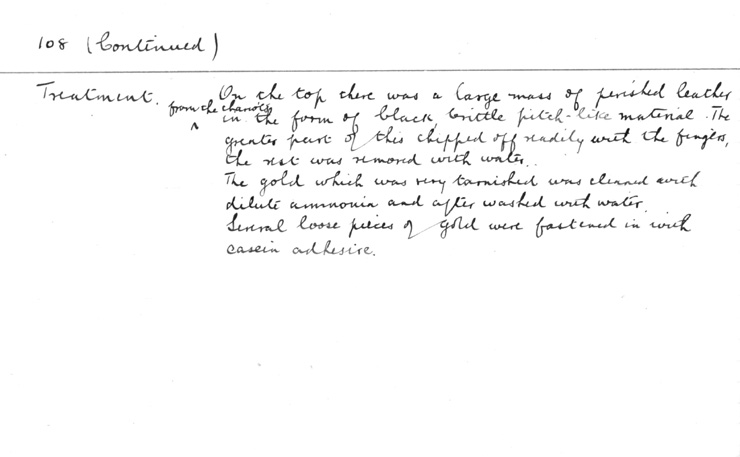 108 (Continued)
Treatment. On the top there was a large mass of perished leather
from the chariots
^ in the form of black brittle pitch-like material. The
greater part of this chipped off readily with the fingers,
the rest was removed with water.
The gold which was very tarnished was cleaned with
dilute ammonia and after washed with water.
Several loose pieces of gold were fastened in with
casein adhesive.